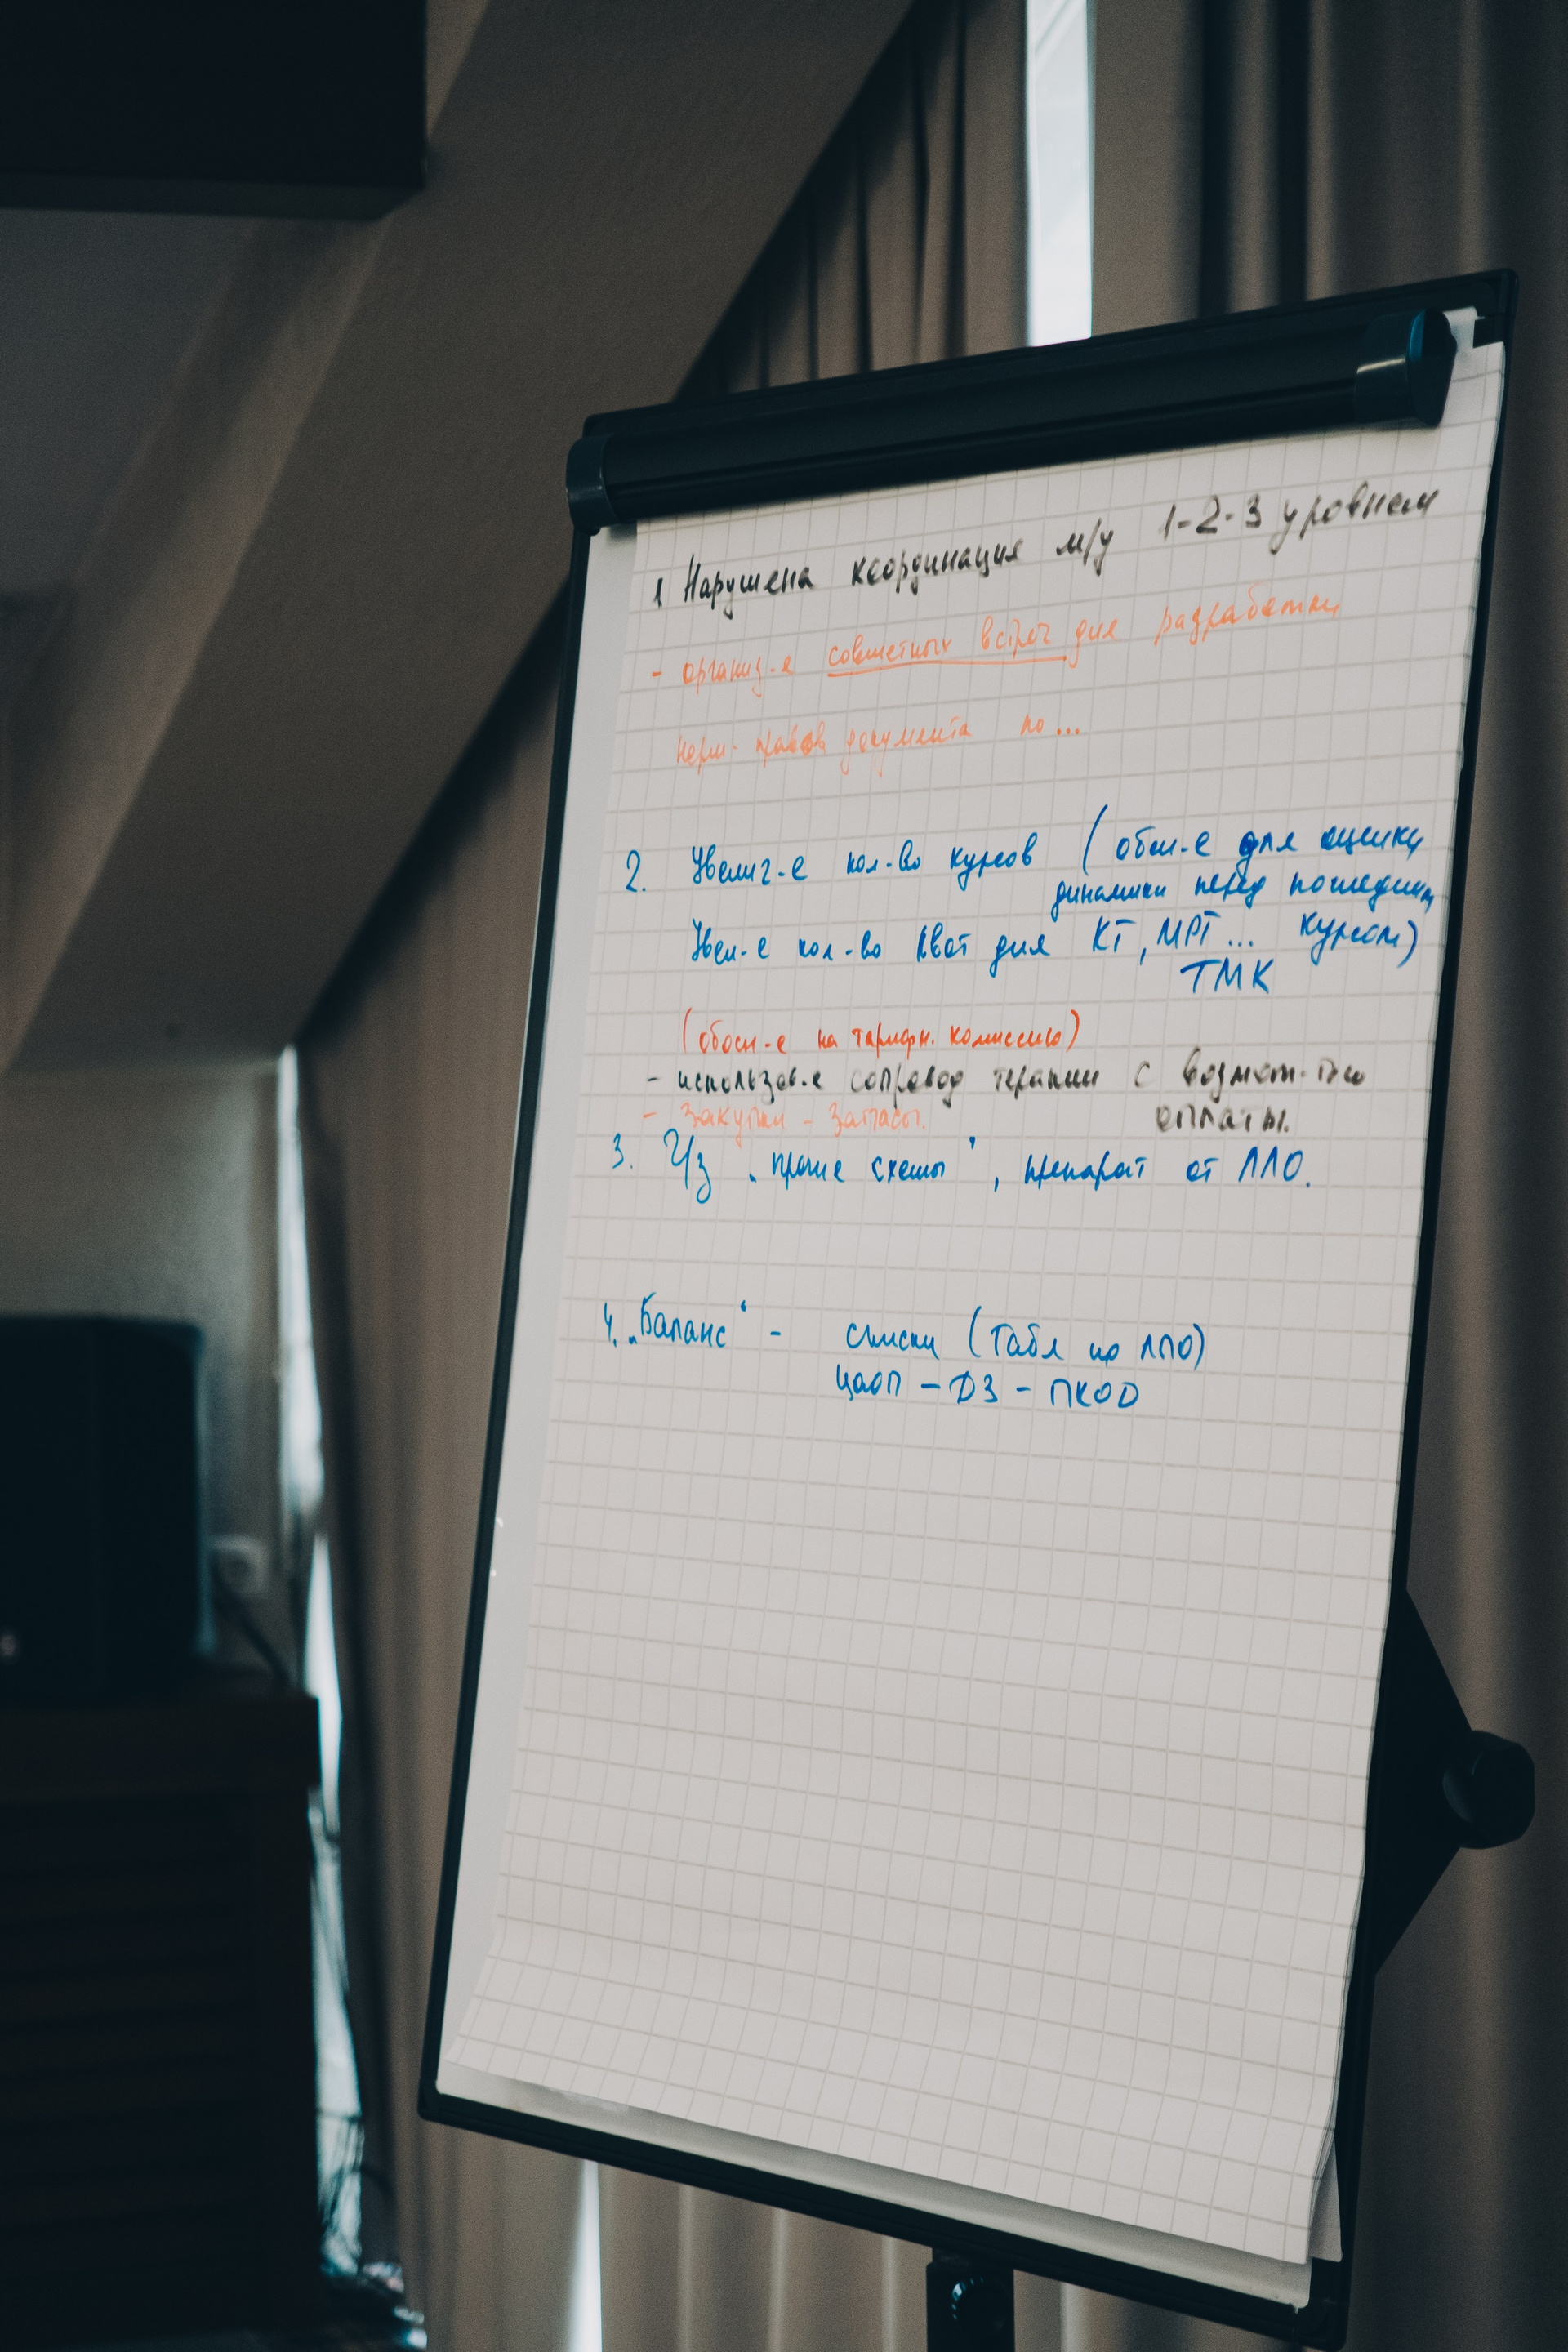 1 Нарушена координация м/у 1-2-3 уровнем
- организ-е совместных встреч для разработки
норм- правов документа по...
2. Увелич-е кол-во курсов (обсл-е для оценки
динамики перед последним
Увел-е кол-во квот для КТ, МРТ... курсом)
ТМК
(обосн-е на тарифн. комиссию)
- использов-е сопровод терапии с возмож-тью
- закупки - запасы. оплаты.
3. Ч/з "прочие схемы", препарат от ЛЛО.
4. "Баланс" - списки (табл по ЛЛО)
ЦАОП - ДЗ - ПКОД